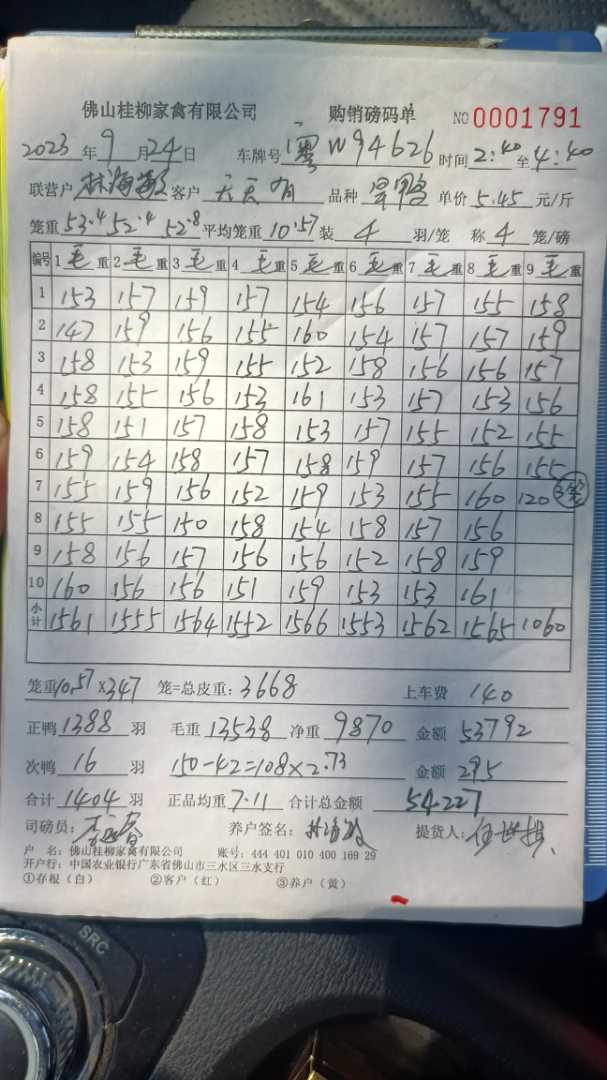 佛山桂柳家禽有限公司 购销磅码单 NO 0001791
2023年9月24日 车牌号 粤W94626 时间2:40至4:40
联营户 林海敏 客户 天天有 品种 呈鸭 单价5.45元/斤
笼重53.4 52.4 52.8 平均笼重10.57 装4羽/笼 称4笼/磅
编号 1毛重 2毛重 3毛重 4毛重 5毛重 6毛重 7毛重 8毛重 9毛重
1 153 157 159 157 154 156 157 155 158
2 147 159 156 155 160 154 157 157 159
3 158 153 159 155 152 158 156 156 157
4 158 155 156 153 161 153 157 153 156
5 158 151 157 158 153 157 155 152 155
6 159 154 158 157 158 159 157 156 155
7 155 159 156 152 159 153 155 160 120 3笼
8 155 155 150 158 154 158 157 156
9 158 156 157 156 156 152 158 159
10 160 156 156 151 159 153 153 161
小计 1561 1555 1564 1552 1566 1553 1562 1565 1060
笼重10.57×347 笼=总皮重:3668 上车费 140
正鸭1388羽 毛重13538 净重9870 金额53792
次鸭16羽 150-42=108×2.73 金额295
合计1404羽 正品均重7.11 合计总金额 54227
司磅员: 养户签名:林海敏 提货人:
户 名:佛山桂柳家禽有限公司 账号:444 401 010 400 169 29
开户行:中国农业银行广东省佛山市三水区三水支行
①存根(白) ②客户(红) ③养户(黄)
SRC